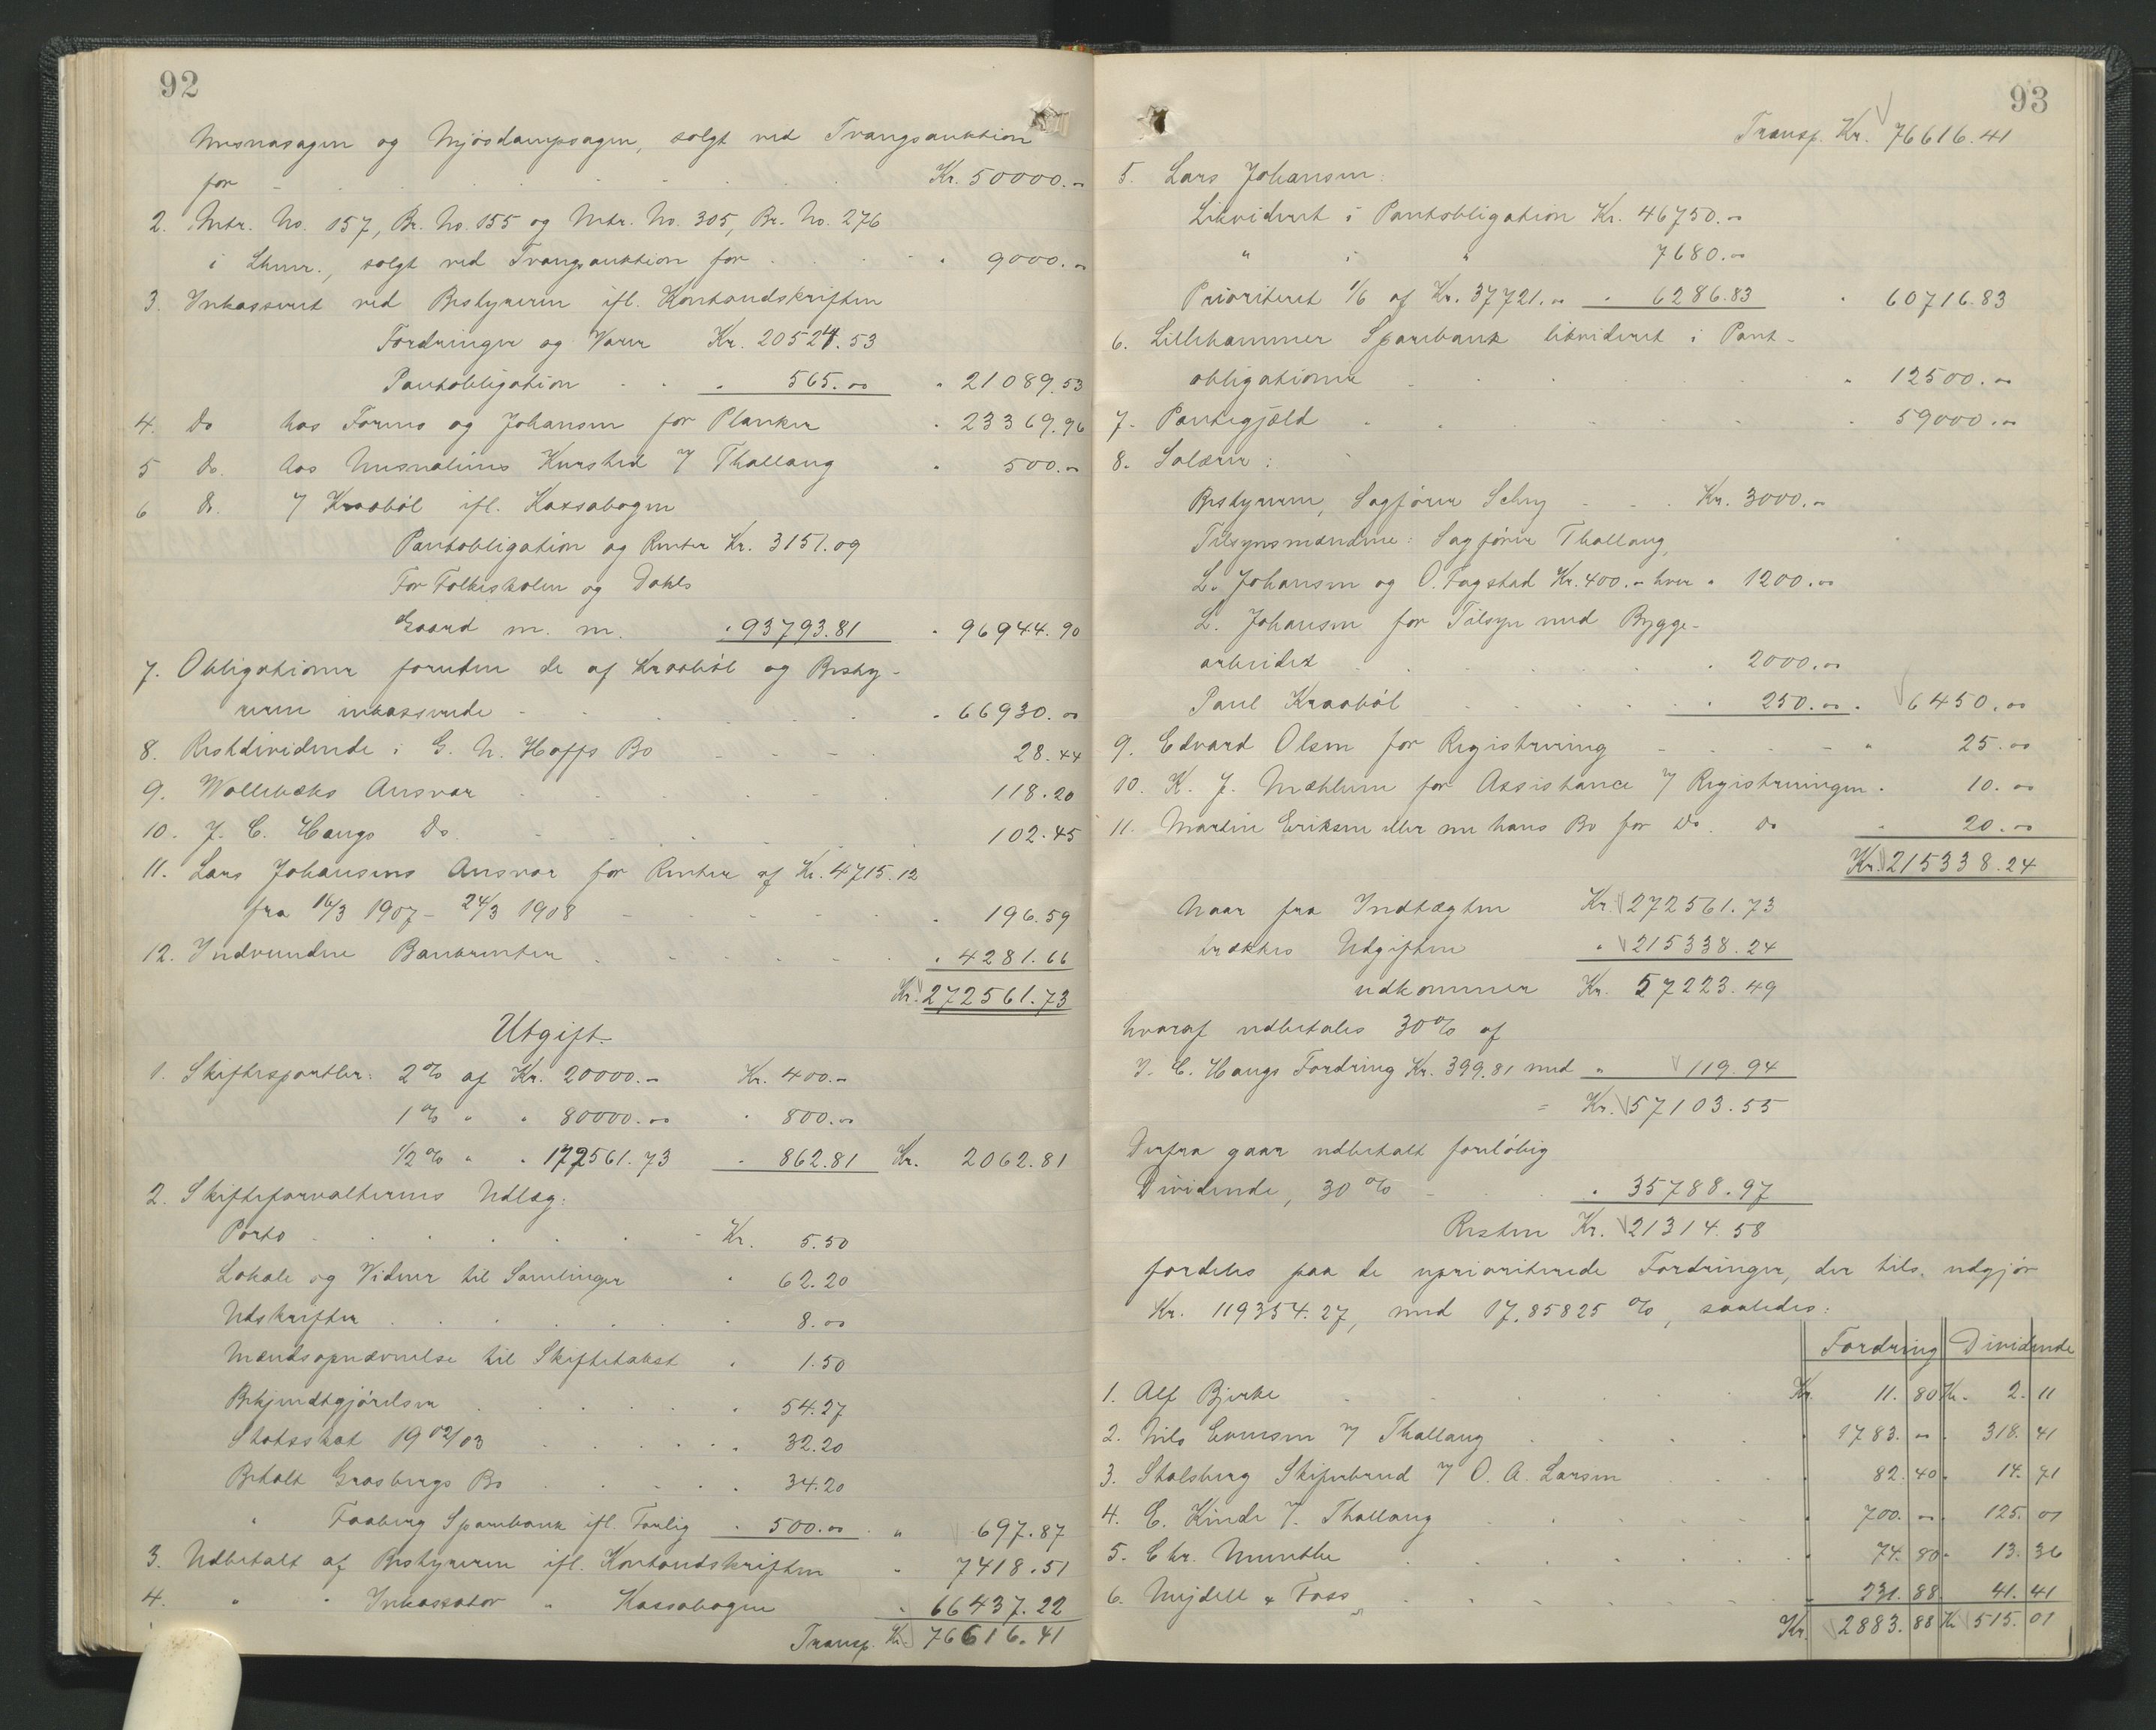 92
Mesnasagen og Mjösdampsagen, solgt ved Tvangsauktion
for - Kr. 50000.-
2. Mtr. No. 157, Br. No. 155 og Mtr. No. 305, Br. No. 276
i Lhmr., solgt ved Tvangsauktion for " 9000.-
3. Inkasseret ved Bestyreren ifl. Kontoudskriften
Fordringer og Varer Kr. 20524.53
Pantobligation " 565.00 " 21089.53
4. Do hos Formo og Johansen for Planker " 23369.96
5 Do. hos Mesnaliens Kursted v/ Thallaug " 500.-
6 Do. v/ Kraabøl ifl. Kassabogen
Pantobligation og Renter Kr. 3151.09
For Folkeskolen og Dahls
Gaard m. m. " 93793.81 " 96944.90
7. Obligationer foruden de af Kraabøl og Besty-
reren inkasserede - " 66930.00
8. Restdividende i G. N. Hoffs Bo 28.44
9. Wollebæks Ansvar 118.20
10. J. C. Haugs Do. 102.45
11. Lars Johansens Ansvar for Renter af Kr. 4715.12
fra 16/3 1907 - 24/3 1908 " 196.59
12. Indvundne Bankrenter " 4281.66
Kr. 272561.73
Utgift.
1. Skiftesportler: 2% af Kr. 20000.- Kr. 400.-
1% " " 80000.00 " 800.00
1/2% " " 172561.73 " 862.81 Kr. 2062.81
2. Skifteforvalterens Udlæg:
Porto - Kr. 5.50
Lokale og Vidner til Samlinger " 62.20
Udskrifter " 8.00
Mændsopnævnelse til Skiftetakst " 1.50
Bekjendtgjörelser " 54.27
Statsskat 1902/03 " 32.20
Betalt Grasbergs Bo " 34.20
" Faaberg Sparebank ifl. Forlig " 500.00 " 697.87
3. Udbetalt af Bestyreren ifl. Kontoudskriften " 7418.51
4. " " Inkassator " Kassabogen " 66437.22
Transp. Kr. 76616.41
93
Transp. Kr. 76616.41
5. Lars Johansen:
Likvideret i Pantobligation Kr. 46750.00
" i " 7680.00
Prioriteret 1/6 af Kr. 37721.00 " 6286.83 " 60716.83
6. Lillehammer Sparebank likvideret i Pant-
obligationer " 12500.00
7. Pantegjæld " 59000.00
8. Salærer:
Bestyreren, Sagförer Selny Kr. 3000.-
Tilsynsmændene: Sagförer Thallaug,
L. Johansen og O. Fagstad Kr. 400.- hver " 1200.00
L. Johansen for Tilsyn med Bygge-
arbeidet " 2000.00
Paul Kraaböl " 250.00 " 6450.00
9. Edvard Olsen for Registrering " 25.00
10. K. J. Mæhlum for Assistance v/ Registreringen " 10.00
11. Martin Eriksen eller nu hans Bo for Do. Do " 20.00
Kr. 215338.24
Naar fra Indtægten Kr. 272561.73
trækkes Utgiften " 215338.24
udkommer Kr. 57223.49
hvoraf udbetales 30% af
J. C. Haugs Fordring Kr. 399.81 med " 119.94
= Kr. 57103.55
Derfra gaar udbetalt foreløbig
Dividende, 30% - " 35788.97
Resten Kr. 21314.58
fordeles paa de uprioriterede Fordringer, der tils. udgjör
Kr. 119354.27, med 17.85825 %, saaledes:
Fordring Dividende
1. Alf Bjerke Kr. 11.80 Kr. 2.11
2. Nils Evensen v/ Thallaug " 1783.00 " 318.41
3. Stalsberg Skiferbrud v/ O. A. Larsen " 82.40 " 14.71
4. E. Kinde v/ Thallaug " 700.00 " 125.01
5. Chr. Munthe " 74.80 " 13.36
6. Mejdell & Foss " 231.88 41.41
Kr. 2883.88 Kr 515.01